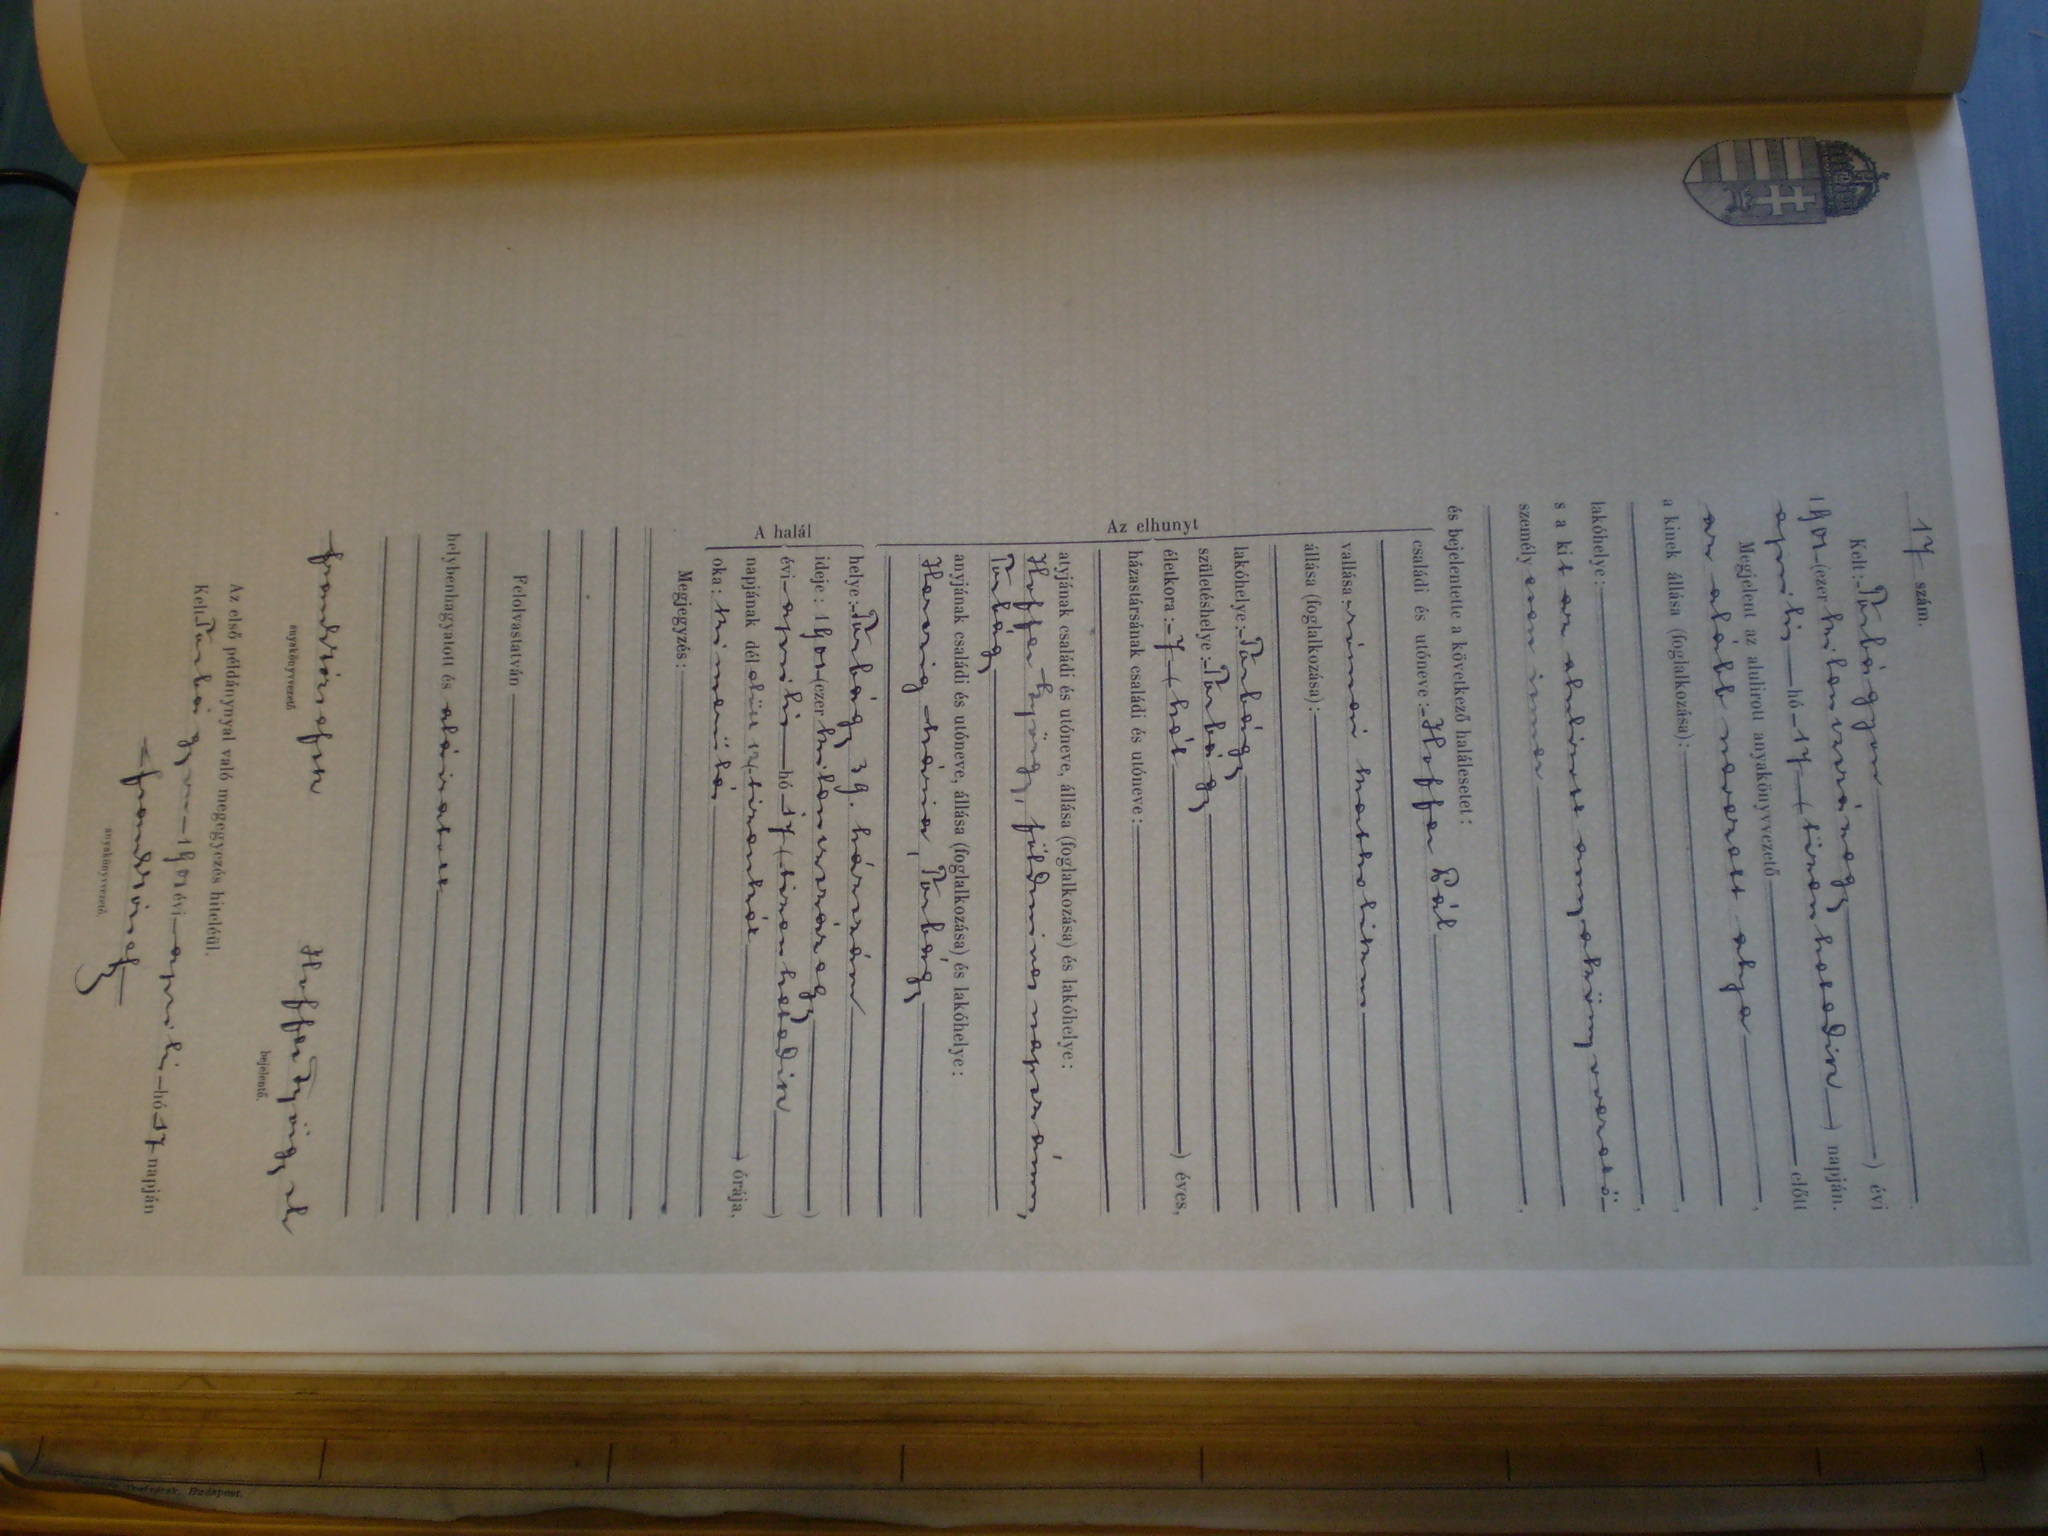 17 szám.
Kelt: Torbágyon
1901 (ezer kilenczszáz egy ) évi
aprilis hó 17 ( tizenhetedik ) napján.
Megjelent az alulirott anyakönyvvezető előtt
az alább nevezett atya
a kinek állása (foglalkozása):
lakóhelye:
s a kit az alulirott anyakönyvvezető
személyesen ismer
és bejelentette a következő halálesetet:
családi és utóneve: Hoffer Pál
vallása: római katholikus
állása (foglalkozása):
Az elhunyt
lakóhelye: Torbágy
születéshelye: Torbágy
életkora: 7 ( hét ) éves,
házastársának családi és utóneve:
atyjának családi és utóneve, állása (foglalkozása) és lakóhelye:
Hoffer György, földmíves napszámos,
Torbágy
anyjának családi és utóneve, állása (foglalkozása) és lakóhelye:
Herczig Mária, Torbágy
A halál
helye: Torbágy 39. házszám
ideje: 1901 (ezer kilenczszáz egy )
évi aprilis hó 17 ( tizenhetedik )
napjának dél előtt ( tizenkét ) órája,
oka: kimerülés
Megjegyzés:
Felolvastatván
helybenhagyatott és aláiratott
Hoffer György
anyakönyvvezető
bejelentő.
Az első példánynyal való megegyezés hiteléül.
Kelt Torbágy 1901 évi aprilis hó 17 napján
anyakönyvvezető.
Budapest.